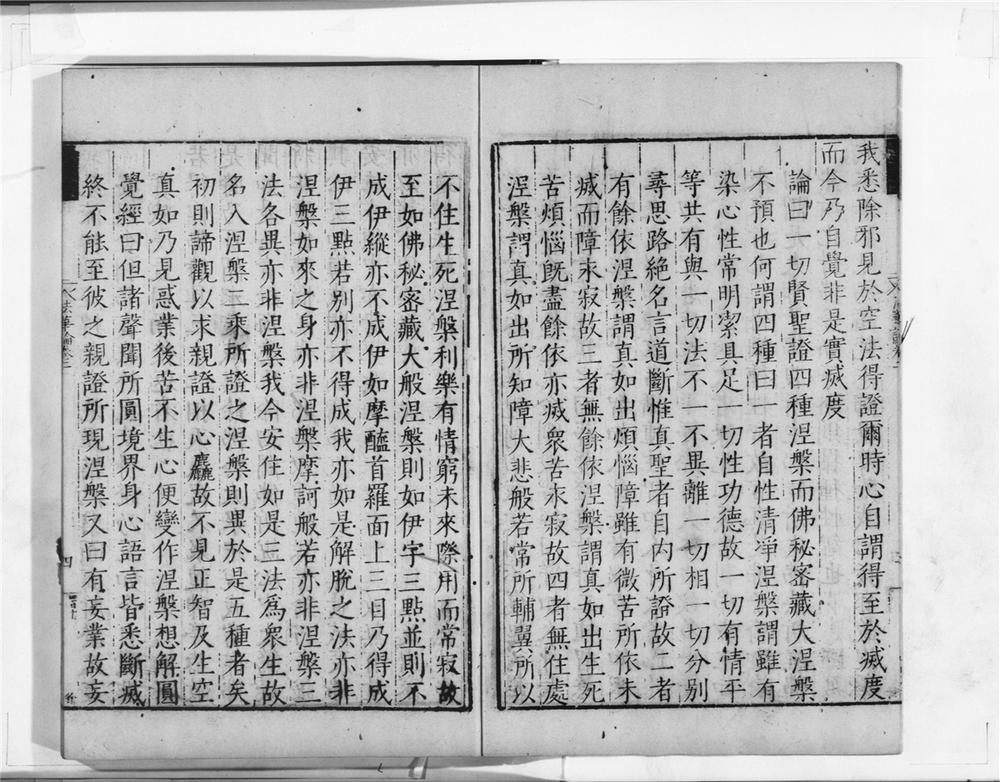 我悉除邪見於空法得證爾時心自謂得至於滅度
而今乃自覺非是實滅度
論曰一切賢聖證四種涅槃而佛秘密藏大涅槃
不預也何謂四種曰一者自性清淨涅槃謂雖有
染心性常明潔具足一切性功德故一切有情平
等共有與一切法不一不異離一切相一切分別
尋思路絕名言道斷惟真聖者自內所證故二者
有餘依涅槃謂真如出煩惱障雖有微苦所依未
滅而障永寂故三者無餘依涅槃謂真如出生死
苦煩惱既盡餘依亦滅眾苦永寂故四者無住處
涅槃謂真如出所知障大悲般若常所輔翼所以
不住生死涅槃利樂有情窮未來際用而常寂故
至如佛秘密藏大般涅槃則如伊字三點並則不
成伊縱亦不成伊如摩醯首羅面上三目乃得成
伊三點若別亦不得成我亦如是解脫之法亦非
涅槃如來之身亦非涅槃摩訶般若亦非涅槃三
法各異亦非涅槃我今安住如是三法為眾生故
名入涅槃二乘所證之涅槃則異於是五種者矣
初則諦觀以求親證以心麤故不見正智及生空
真如乃見惑業後苦不生心便變作涅槃想解圓
覺經曰但諸聲聞所圓境界身心語言皆悉斷滅
終不能至彼之親證所現涅槃又曰有妄業故妄
法華論卷三
四